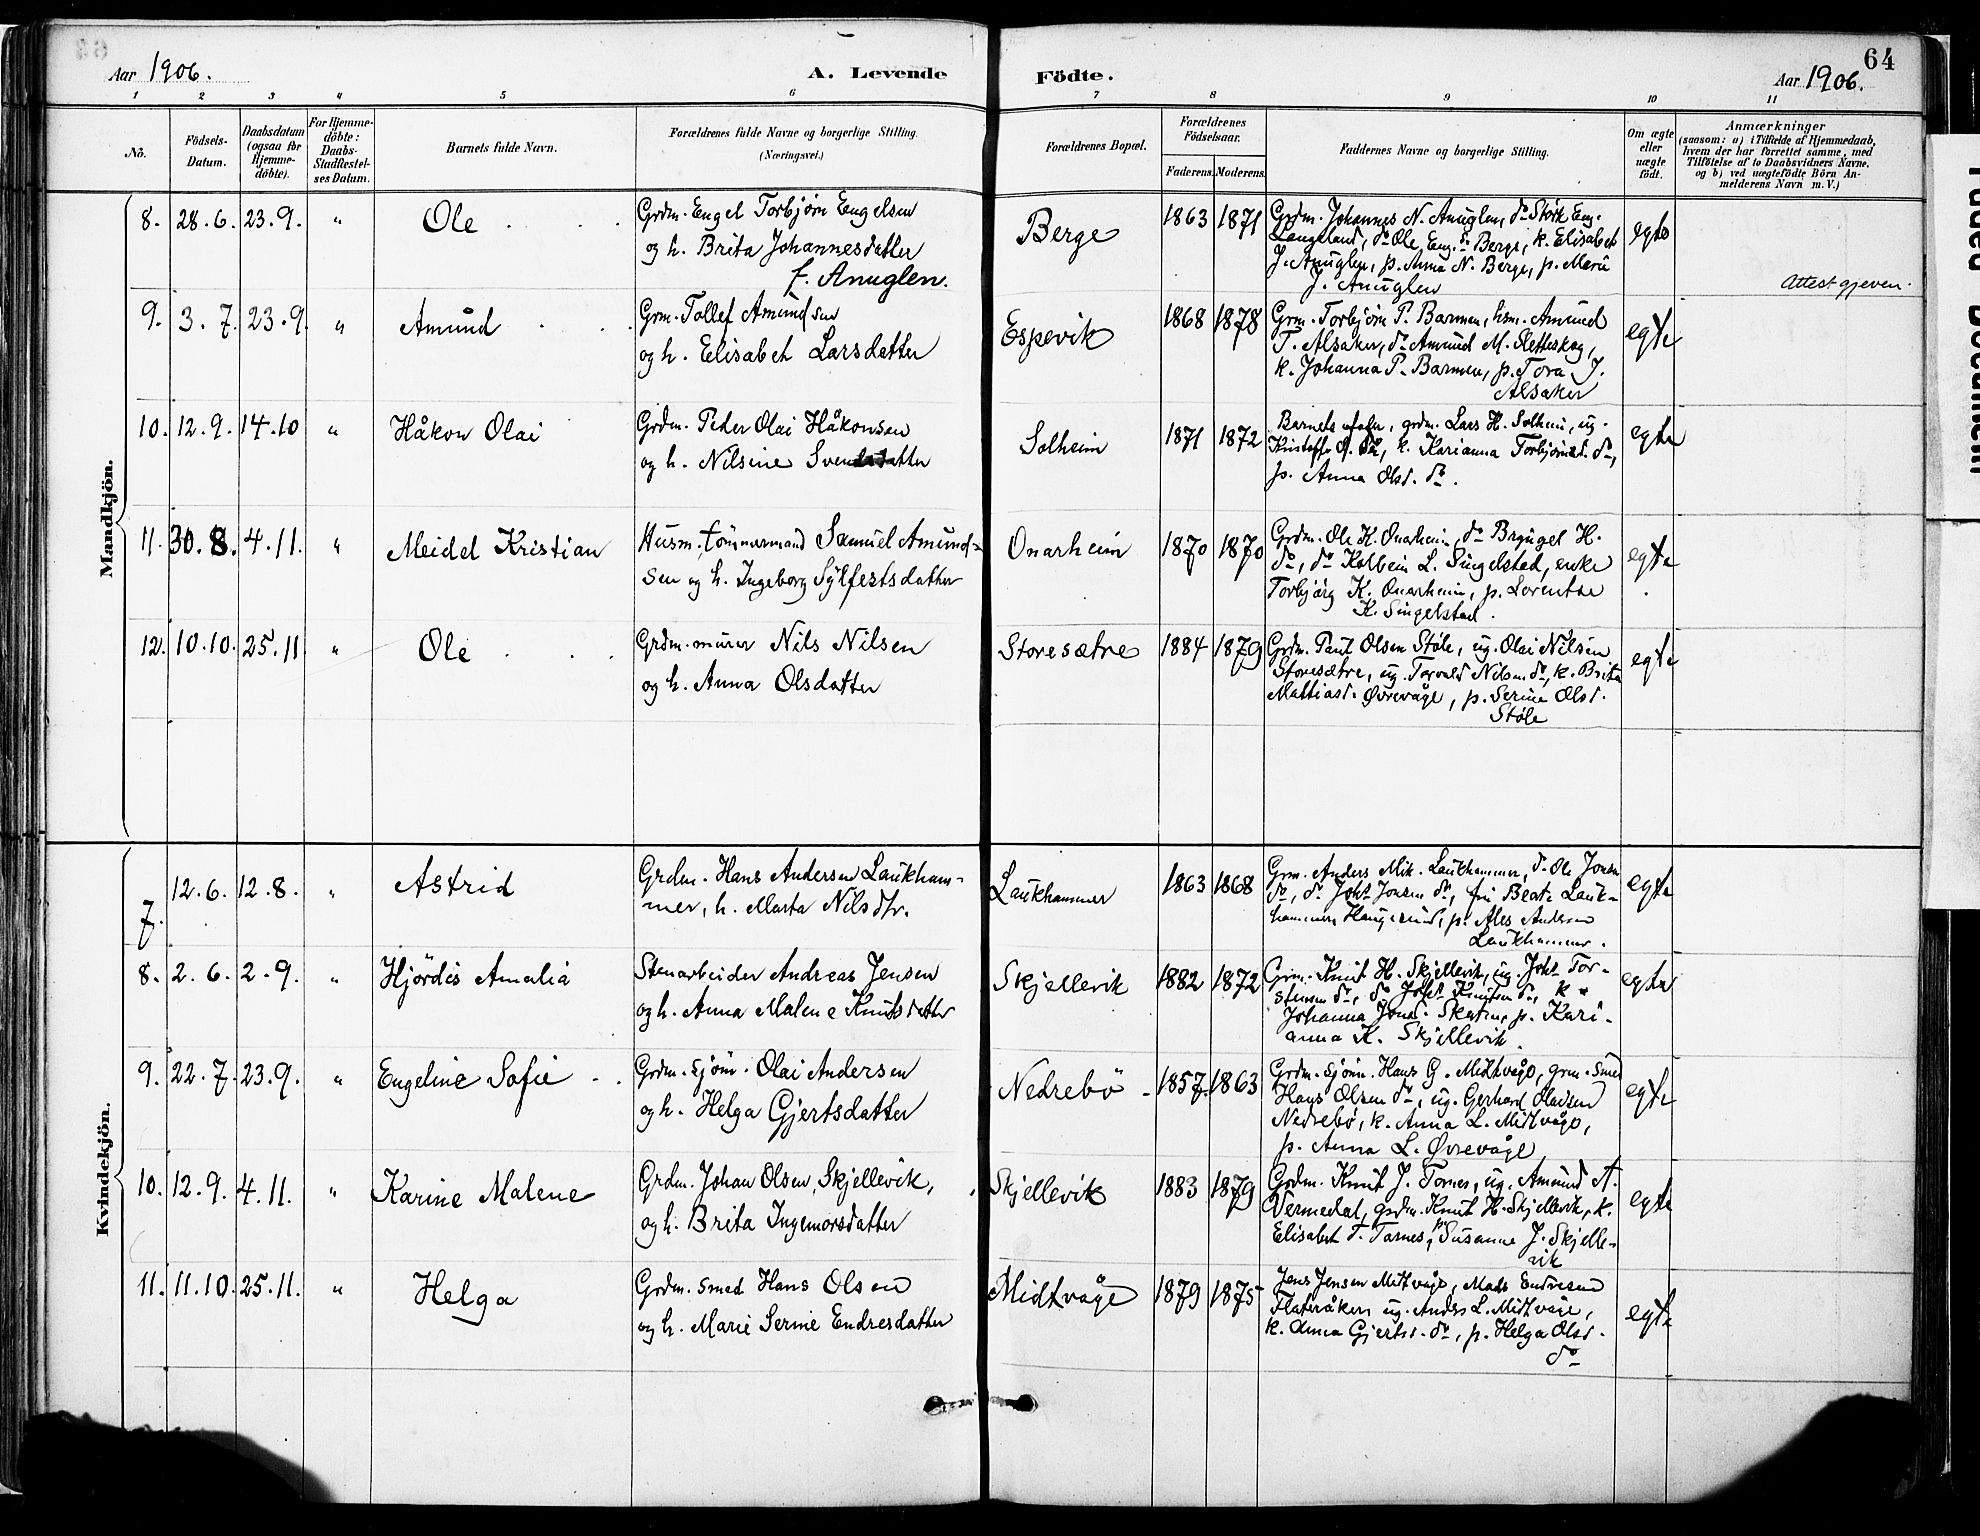 64
Aar 1906.
A. Levende Födte.
Aar 1906.
1 2 3 4 5 6 7 8 9 10 11
No.
Födsels-Datum.
Daabsdatum (ogsaa for Hjemme-döbte).
For Hjemme-döbte: Daabs-Stadfæstel-ses Datum.
Barnets fulde Navn.
Forældrenes fulde Navne og borgerlige Stilling.
(Næringsvei.)
Forældrenes Bopæl.
Forældrenes Födselsaar.
Faderens. Moderens.
Faddernes Navne og borgerlige Stilling.
Om ægte eller uægte født.
Anmærkninger
(saasom: a) i Tilfælde af Hjemmedaab, hvem der har forrettet samme, med Tilföielse af to Daabsvidners Navne, og b) ved uægtefödte Börn An-melderens Navn m. V.)
Mandkjön.
8. 28.6. 23.9. " Ole
Grdm. Engel Torbjørn Engelsen
og h. Brita Johannesdatter
f. Anuglen.
Berge 1863 1871
Grdm. Johannes N. Anuglen, do Størk Eng.
Langeland, do Ole Eng. do Berge, k. Elisabet
J. Anuglen, p. Anna N. Berge, p. Marie
J. Anuglen
egte
Attest gjeven.
9. 3.7. 23.9. " Amund
Grm. Tollef Amundsen
og h. Elisabet Larsdatter
Espevik 1868 1878
Grm. Torbjørn P. Barmen, hsm. Amund
T. Alsaker, do Amund M. Sletteskog,
k. Johanna P. Barmen, p. Tora J.
Alsaker
egte
10. 12.9. 14.10 " Håkon Olai
Grdm. Peder Olai Håkonsen
og h. Nilsine Svendsdatter
Solheim 1871 1872
Barnets fader, grdm. Lars H. Solheim, ug.
Kristoffer O. do, k. Karianna Torbjørnsd. do,
p. Anna Olsd. do.
egte
11. 30.8. 4.11. " Meidel Kristian
Husm. tömmermand Samuel Amund-
sen og h. Ingeborg Sylfestsdatter
Onarheim 1870 1870
Grdm. Ole K. Onarheim, do Brynjel H.
do, do Kolbein L. Singelstad, enke
Torbjørg K. Onarheim, p. Lorentse
K. Singelstad.
egte
12. 10.10. 25.11 " Ole
Grdm. murer Nils Nilsen
og h. Anna Olsdatter
Storesætre 1884 1879
Grdm. Paul Olsen Støle, ug. Olai Nilsen
Storesætre, ug. Torvald Nilsen do, k. Brita
Mattiasd. Øvrevåge, p. Serine Olsd.
Støle
egte
Kvindekjön.
7. 12.6. 12.8. " Astrid
Grdm. Hans Andersen Laukham-
mer, h. Marta Nilsdtr.
Laukhammer 1863 1868
Grm. Anders Mik. Laukhammer, do Ole Jonsen
do, do Johs Jonsen do, fru Beate Lauk-
hammer Haugesund, p. Ales Anders
Laukhammer.
egte
8. 2.6. 2.9. " Hjördis Amalia
Stenarbeider Andreas Jensen
og h. Anna Malene Knutsdatter
Skjellevik 1882 1872
Grm. Knut H. Skjellevik, ug. Johs Tor-
stensen do, do Josef Knutsen do, k
Johanna Jonsd. Skaten, p. Kari-
anna K. Skjellevik.
egte
9. 22.7. 23.9. " Engeline Sofie
Grdm. sjöm. Olai Andersen
og h. Helga Gjertsdatter
Nedrebö 1857 1863
Grdm. sjöm. Hans G. Midtvåge, grm. smed
Hans Olsen do, ug. Gerhard Olaisen
Nedrebø, k. Anna L. Midtvåge,
p. Anna L. Øvrevåge
egte
10. 12.9. 4.11. " Karine Malene
Grdm. Johan Olsen, Skjellevik,
og h. Brita Ingemorsdatter
Skjellevik 1883 1879
Grdm. Knut J. Tornes, ug. Amund A.
Vermedal, grdm. Knut H. Skjellevik, k.
Elisabet T. Tornes, p. Susanne J. Skjelle-
vik
egte
11. 11.10. 25.11. " Helga
Grdm. smed Hans Olsen
og h. Marie Serine Endresdatter
Midtvåge 1879 1875
Jens Jensen Midtvåge, Mads Endresen
Flateråker, ug. Anders L. Midtvåge,
k. Anna Gjertsd. do, p. Helga Olsd.
do
egte